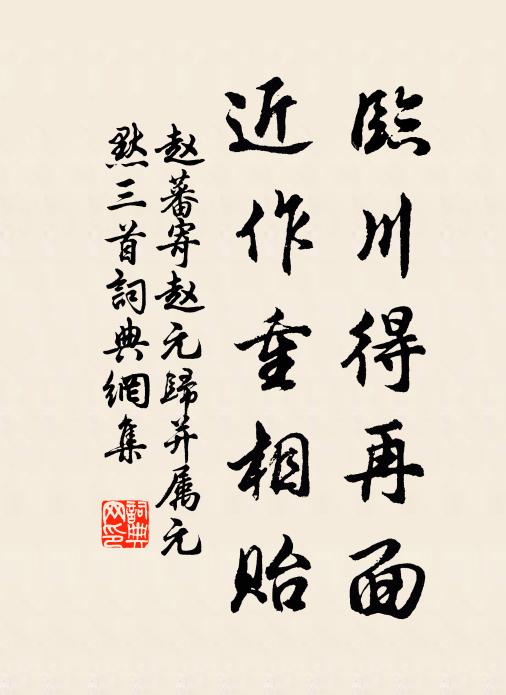 臨川得再面
近作重相貽
赵蕃寄赵元歸并属元
默三首詞典網集
詞典网印